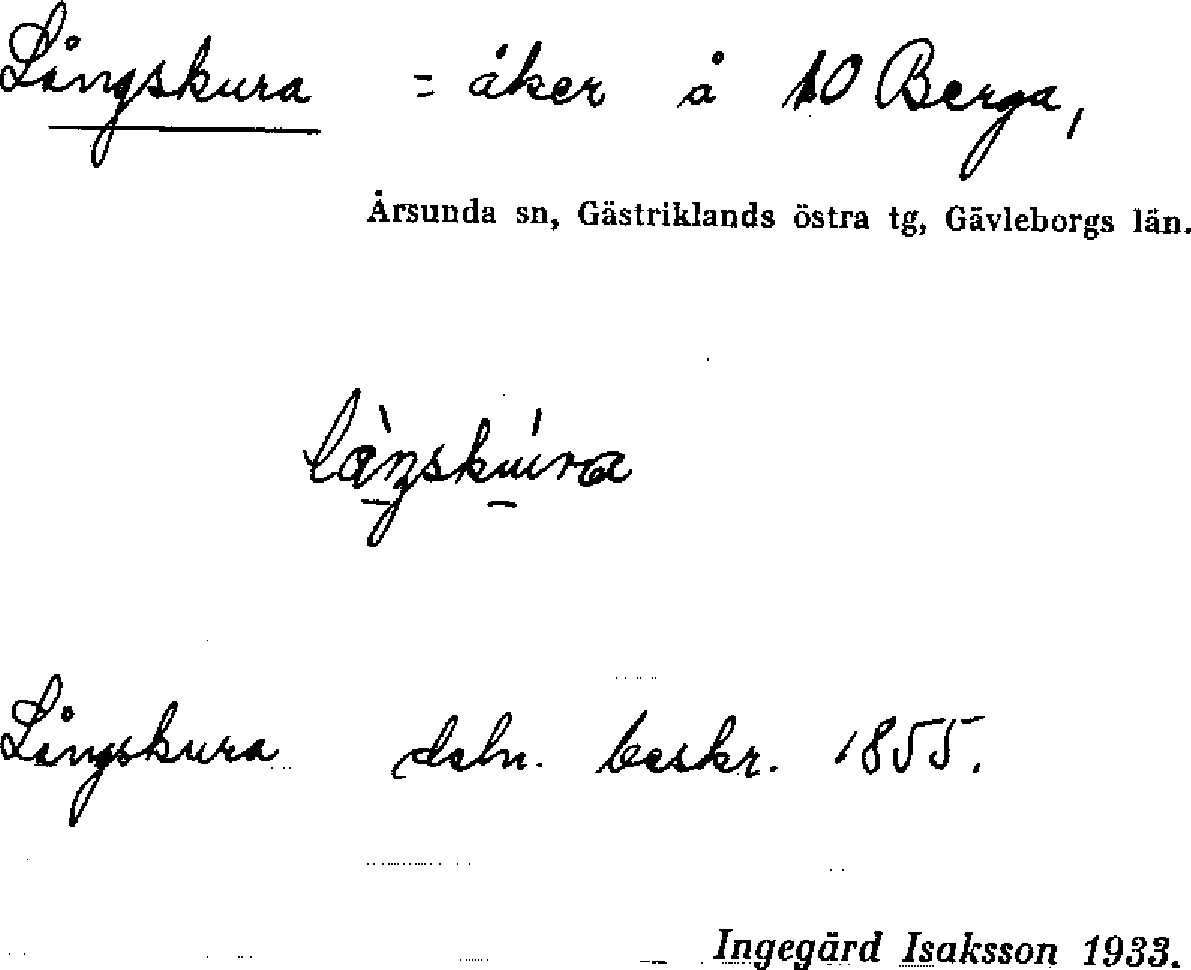 Långskura = åker å 10 Berga,
Årsunda sn, Gästriklands östra tg, Gävleborgs län.
Långskura deln. beskr. 1855.
Ingegärd Isaksson 1933.